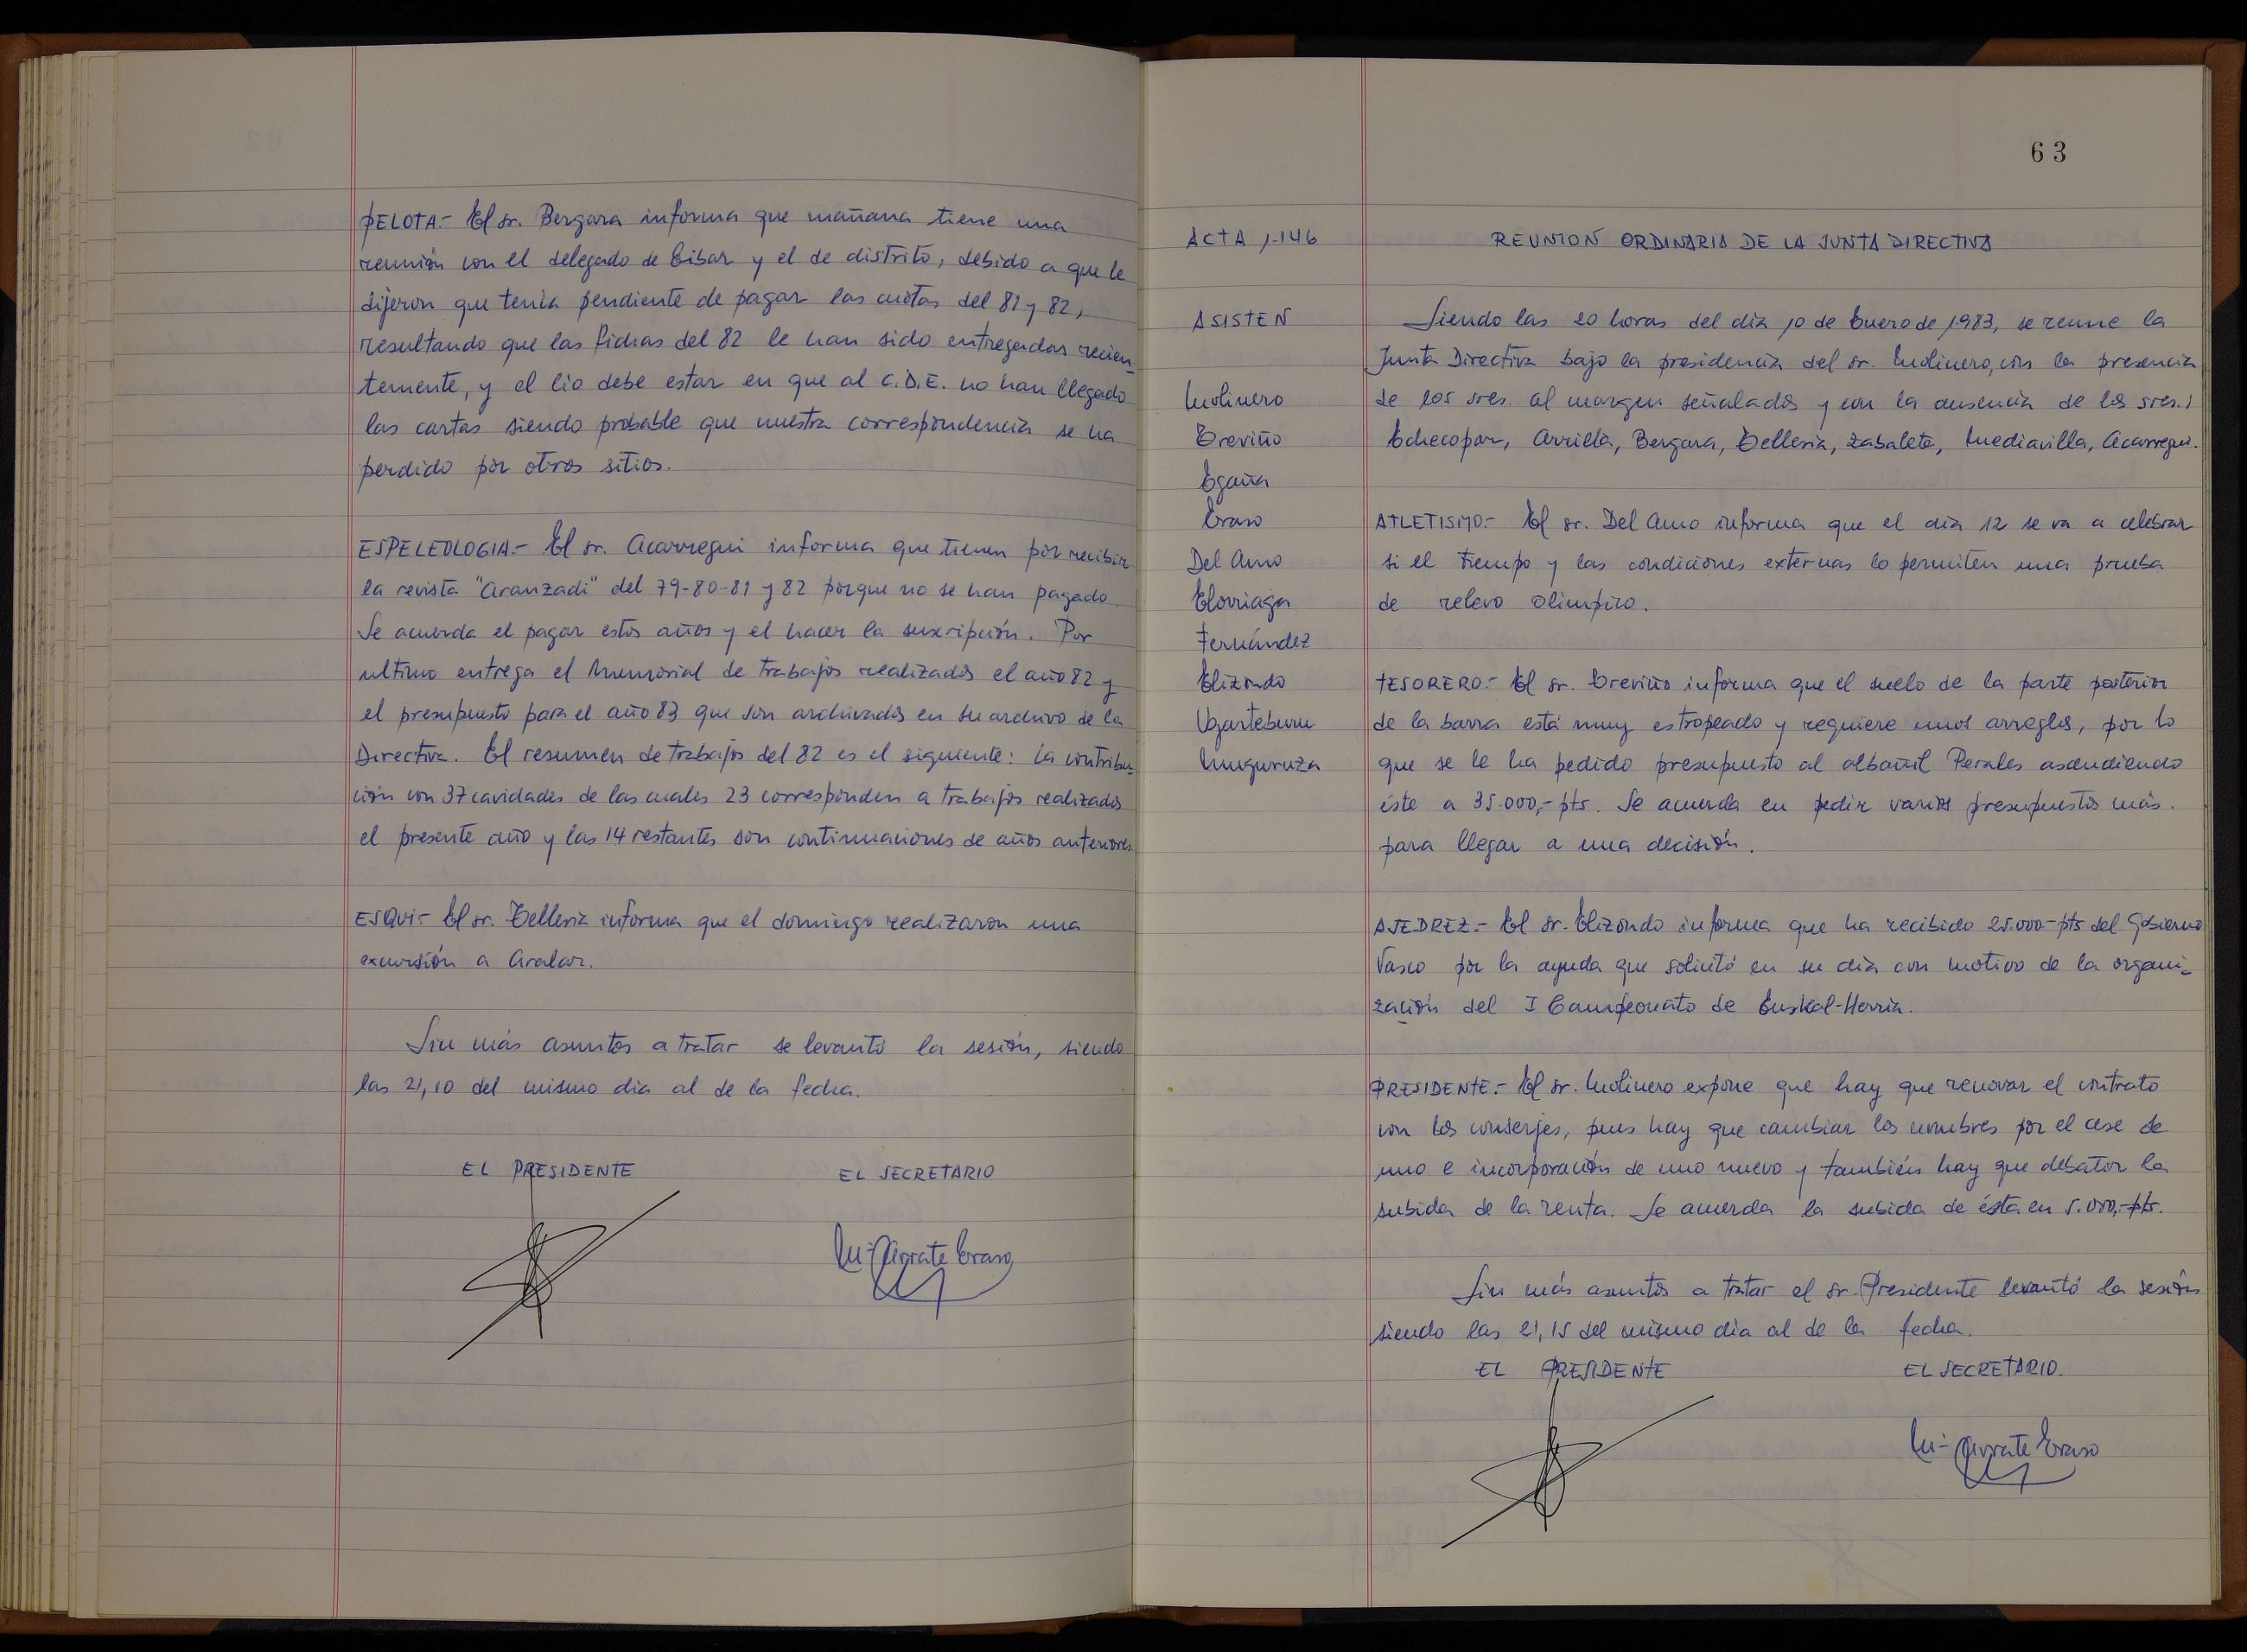 PELOTA.- El sr. Bergara informa que mañana tiene una
reunión con el delegado de Eibar y el de distrito, debido a que le
dijeron que tenía pendiente de pagar las cuotas del 81 y 82,
resultando que las fichas del 82 le han sido entregadas recien-
temente, y el lio debe estar en que al C.D.E. no han llegado
las cartas siendo probable que nuestra correspondencia se ha
perdido por otros sitios.
ESPELEOLOGIA.- El sr. Acarregui informa que tienen por recibir
la revista "Aranzadi" del 79-80-81 y 82 porque no se han pagado.
Se acuerda el pagar estos años y el hacer la suscripción. Por
ultimo entrega el Memorial de trabajos realizados el año 82 y
el presupuesto para el año 83 que son archivados en su archivo de la
Directiva. El resumen de trabajos del 82 es el siguiente: La contribu-
ción con 37 cavidades de las cuales 23 corresponden a trabajos realizados
el presente año y las 14 restantes son continuaciones de años anteriores.
ESQUI.- El sr. Telleria informa que el domingo realizaron una
excursión a Aralar.
Sin más asuntos a tratar se levantó la sesión, siendo
las 21,10 del mismo dia al de la fecha.
EL PRESIDENTE EL SECRETARIO
Mª Arrate Eraso
63
ACTA 1.146 REUNION ORDINARIA DE LA JUNTA DIRECTIVA
ASISTEN
Molinero
Treviño
Egaña
Eraso
Del Amo
Elorriaga
Fernández
Elizondo
Ugarteburu
Muguruza
Siendo las 20 horas del día 10 de Enero de 1.983, se reune la
Junta Directiva bajo la presidencia del sr. Molinero, con la presencia
de los sres. al margen señalados y con la ausencia de los sres.:
Echecopar, Arrieta, Bergara, Telleria, Zabaleta, Mediavilla, Acarregui.
ATLETISMO.- El sr. Del Amo informa que el día 12 se va a celebrar
si el tiempo y las condiciones externas lo permiten una prueba
de relevo olimpico.
TESORERO.- El sr. Treviño informa que el suelo de la parte posterior
de la barra está muy estropeado y requiere unos arreglos, por lo
que se le ha pedido presupuesto al albañil Perales ascendiendo
éste a 35.000,- pts. Se acuerda en pedir varios presupuestos más.
para llegar a una decisión.
AJEDREZ.- El sr. Elizondo informa que ha recibido 25.000.- pts del Gobierno
Vasco por la ayuda que solicitó en su día con motivo de la organi-
zación del I Campeonato de Euskal-Herria.
PRESIDENTE.- El sr. Molinero expone que hay que renovar el contrato
con los conserjes, pues hay que cambiar los nombres por el cese de
uno e incorporación de uno nuevo y también hay que debatir la
subida de la renta. Se acuerda la subida de ésta en 5.000,- pts.
Sin más asuntos a tratar el sr. Presidente levantó la sesión
siendo las 21,15 del mismo día al de la fecha.
EL PRESIDENTE EL SECRETARIO.
Mª Arrate Eraso